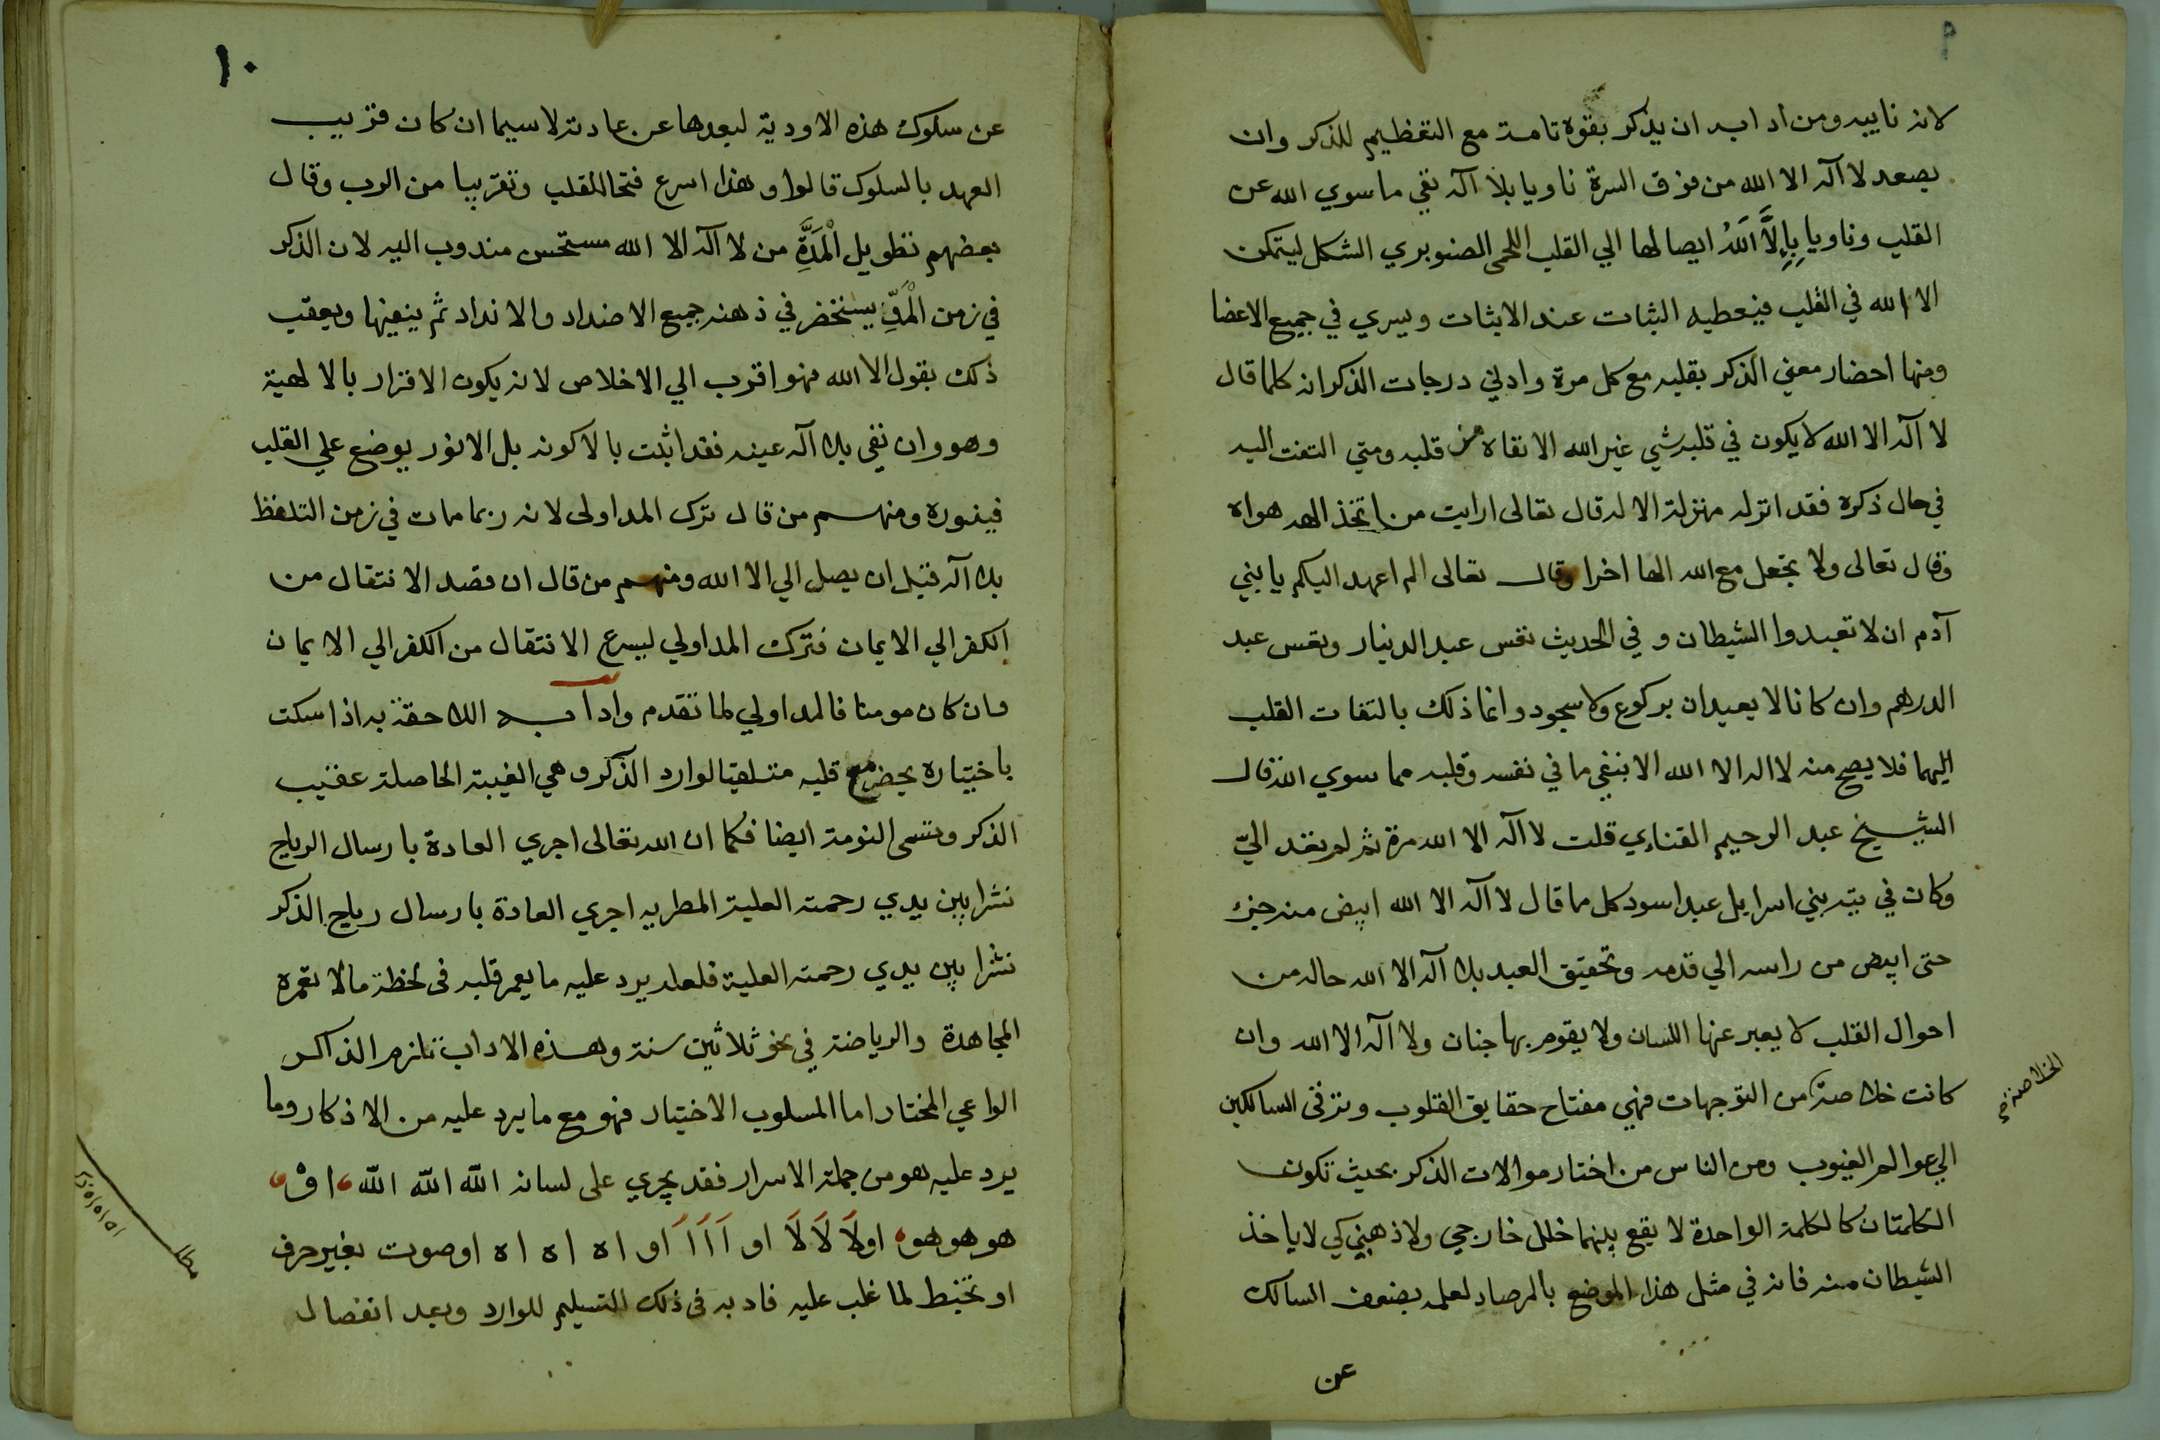 ٩
لانه نايبه ومن ادابه ان يذكر بقوه تامة مع التعظيم للذكر وان
يصعد لا اله الا الله من فوق السرة ناويا بلا اله نفي ما سوي الله عن
القلب وناويا بِاِلَّا اللهُ ايصالها الي القلب اللحمي الصنوبري الشكل ليتمكن
الا الله في القلب فيعطيه الثبات عند الاثبات ويسري في جميع الاعضا
ومنها احضار معني الذكر بقلبه مع كل مرة وادني درجات الذكر انه كلما قال
لا اله الا الله لا يكون في قلبه شي غير الله الا نفاه من قلبه ومتي التفت اليه
في حال ذكره فقد انزله منزلة الاله قال تعالى ارايت من اتخذ الهه هواه
وقال تعالى ولا تجعل مع الله الها اخرا وقال تعالى الم اعهد اليكم يا بني
آدم ان لا تعبدوا الشيطان وفي الحديث تعس عبد الدينار وتعس عبد
الدرهم وان كانا لا يعبدان بركوع ولا سجود وانما ذلك بالتفات القلب
اليهما فلا يصح منه لا اله الا الله الا بنفي ما في نفسه وقلبه مما سوي الله قال
الشيخ عبد الرحيم القناءي قلت لا اله الا الله مرة ثم لم تعد اليّ
وكان في تيه بني اسرايل عبد اسود كل ما قال لا اله الا الله ابيض منه جزء
حتى ابيض من راسه الي قدمه وتحقيق العبد بلا اله الا الله حاله من
احوال القلب لا يعبر عنها اللسان ولا يقوم بها جنان ولا اله الا الله وان
كانت خلاصة من التوجهات فهي مفتاح حقايق القلوب وترقي السالكين
الخلاصة
الي عوالم الغيوب ومن الناس من اختار موالات الذكر بحيث تكون
الكلمتان كالكلمة الواحدة لا يقع بينهما خلل خارجي ولا ذهني كي لا ياخذ
الشيطان منه فانه في مثل هذا الموضع بالمرصاد لعلمه بضعف السالك
عن
١٠
عن سلوك هذه الاودية لبعدها عن عادته لا سيما ان كان قريب
العهد بالسلوك قالوا وهذا اسرع فتحا للقلب وتقريبا من الرب وقال
بعضهم تطويل الْمَدَّةِ من لا اله الا الله مستحسن مندوب اليه لان الذكر
في زمن الْمَدِّ يستحضر في ذهنه جميع الاضداد والانداد ثم ينفيها ويعقب
ذلك بقول الا الله فهو اقرب الي الاخلاص لانه يكون الاقرار بالالهية
وهو وان نفي بلا اله عينه فقد اثبت بالا كونه بل الا نور يوضع علي القلب
فينوره ومنهم من قال ترك المد اولى لانه ربما مات في زمن التلفظ
بلا اله قبل ان يصل الي الا الله ومنهم من قال ان قصد الانتقال من
الكفر الي الايمان فترك المد اولي ليسرع الانتقال من الكفر الي الايمان
وان كان مومنا فالمد اولي لما تقدم وادابه اللاحقة به اذا سكت
باختياره يحضر مع قلبه متلقيا لوارد الذكر وهي الغيبة الحاصلة عقيب
الذكر وتسمى النومة ايضا فكما ان الله تعالى اجري العادة بارسال الرياح
نشرا بين يدي رحمته العلية المطريه اجري العادة بارسال رياح الذكر
نشرا بين يدي رحمته العلية فلعله يرد عليه ما يعمر قلبه في لحظة ما لا تعمره
المجاهدة والرياضة في نحو ثلاثين سنة وهذه الاداب تلزم الذاكر
الواعي المختار اما المسلوب الاختيار فهو مع ما يرد عليه من الاذكار وما
يرد عليه هو من جملة الاسرار فقد يجري على لسانه الله الله الله الله او
هو هو هو او لَا لَا لَا او آ آ آ او اه اه اه او صوت بغير حرف
او تخبط لما غلب عليه فادبه في ذلك التسليم للوارد وبعد انفصال